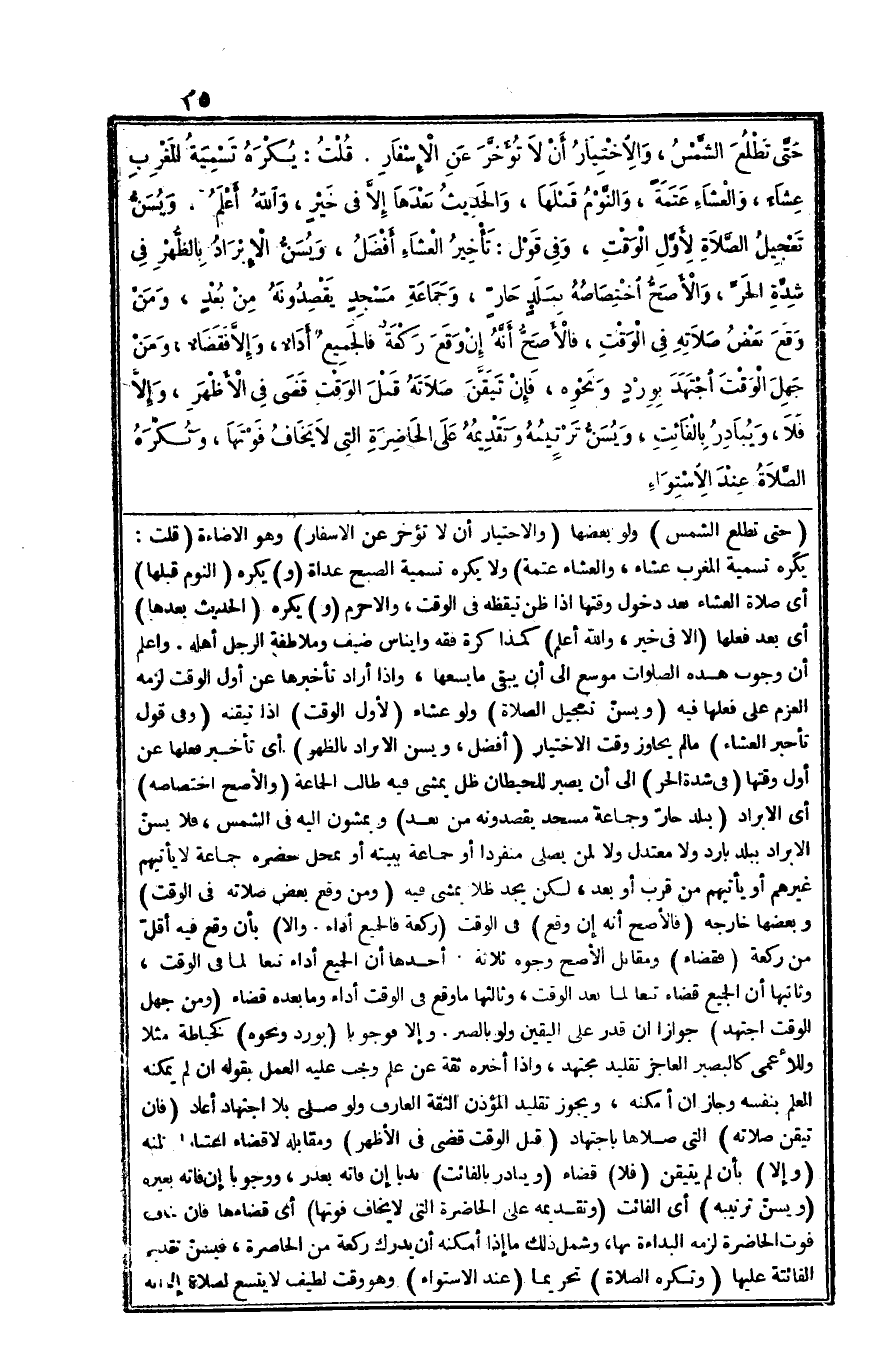 ٣٥
حَتَّى تَطْلُعَ الشَّمْسُ ، وَالِاخْتِيَارُ أَنْ لاَ تُؤَخَّرَ عَنِ الْإِسْفَارِ . قُلْتُ : يُكْرَهُ تَسْمِيَةُ المَغْرِبِ
عِشَاءً ، وَالْعِشَاءِ عَتَمَةً ، وَالنَّوْمُ قَبْلَهَا ، وَالحَدِيثُ بَعْدَهَا إِلاَّ فى خَيْرٍ ، وَاللهُ أَعْلَمُ . وَيُسَنُّ
تَعْجِيلُ الصَّلاَةِ لِأَوَّلِ الْوَقْتِ ، وَفِى قَوْلٍ : تَأْخِيرُ الْعِشَاءِ أَفْضَلُ ، وَيُسَنُّ الْإِبْرَادُ بِالظُّهْرِ فِى
شِدَّةِ الحَرِّ ، وَالْأَصَحُّ اخْتِصَاصُهُ بِبَلَدٍ حَارٍّ ، وَجَمَاعَةِ مَسْجِدٍ يَقْصِدُونَهُ مِنْ بُعْدٍ ، وَمَنْ
وَقَعَ بَعْضُ صَلاَتِهِ فِى الْوَقْتِ ، فالْأَصَحُّ أَنَّهُ إِنْ وَقَعَ رَكْعَةٌ فالجَمِيعُ أَدَاءٌ ، وَإِلاَّ فَقَضَاءٌ ، وَمَنْ
جَهِلَ الْوَقْتَ اجْتَهَدَ بِوِرْدٍ وَنَحْوِهِ ، فَإِنْ تَيَقَّنَ صَلاَتَهُ قَبْلَ الْوَقْتِ قَضَى فِى الْأَظْهَرِ ، وَإِلاَّ
فَلاَ ، وَيُبَادِرُ بِالْفَائِتِ ، وَيُسَنُّ تَرْتِيبُهُ وَتَقْدِيمُهُ عَلَى الحَاضِرَةِ التِى لاَ يَخَافُ فَوْتَهَا ، وَتُكْرَهُ
الصَّلاَةُ عِنْدَ الِاسْتِوَاءِ
( حتى تطلع الشمس ) ولو بعضها ( والاختيار أن لا تؤخر عن الاسفار ) وهو الاضاءة ( قلت :
يكره تسمية المغرب عشاء ، والعشاء عتمة ) ولا يكره تسمية الصبح غداة ( و ) يكره ( النوم قبلها )
أى صلاة العشاء بعد دخول وقتها اذا ظن تيقظه فى الوقت ، والاحرم ( و ) يكره ( الحديث بعدها )
أى بعد فعلها ( الا فى خير ، والله أعلم ) كمذاكرة فقه وايناس ضيف وملاطفة الرجل أهله . واعلم
أن وجوب هذه الصلوات موسع الى أن يبقى ما يسعها ، واذا أراد تأخيرها عن أول الوقت لزمه
العزم على فعلها فيه ( ويسن تعجيل الصلاة ) ولو عشاء ( لأول الوقت ) اذا تيقنه ( وفى قول
تأخير العشاء ) مالم يجاوز وقت الاختيار ( أفضل ، ويسن الابراد بالظهر ) أى تأخير فعلها عن
أول وقتها ( فى شدة الحر ) الى أن يصير للحيطان ظل يمشى فيه طالب الجماعة ( والأصح اختصاصه )
أى الابراد ( ببلد حارّ وجماعة مسجد يقصدونه من بعد ) ويمشون اليه فى الشمس ، فلا يسنّ
الابراد ببلد بارد ولا معتدل ولا لمن يصلى منفردا أو جماعة ببيته أو بمحل حضره جماعة لا يأتيهم
غيرهم أو يأتيهم من قرب أو بعد ، لكن يجد ظلا يمشى فيه ( ومن وقع بعض صلاته فى الوقت )
وبعضها خارجه ( فالأصح أنه إن وقع ) فى الوقت ( ركعة فالجميع أداء . والا ) بأن وقع فيه أقلّ
من ركعة ( فقضاء ) ومقابل الأصح وجوه ثلاثة . أحدها أن الجيع أداء تبعا لما فى الوقت ،
وثانيها أن الجيع قضاء تبعا لما بعد الوقت ، وثالثها ماوقع فى الوقت أداء ومابعده قضاء ( ومن جهل
الوقت اجتهد ) جوازا ان قدر على اليقين ولو بالصبر . وإلا فوجوبا ( بورد ونحوه ) كخياطة مثلا
وللأعمى كالبصير العاجز تقليد مجتهد ، واذا أخبره ثقة عن علم وجب عليه العمل بقوله ان لم يمكنه
العلم بنفسه وجاز ان أمكنه ، ويجوز تقليد المؤذن الثقة العارف ولو صلى بلا اجتهاد أعاد ( فان
تيقن صلاته ) التى صلاها باجتهاد ( قبل الوقت قضى فى الأظهر ) ومقابله لاقضاء
( وإلا ) بأن لم يتيقن ( فلا ) قضاء ( ويبادر بالفائت ) ندبا إن فاته بعذر ، ووجوبا إن فاته بغيره
( ويسنّ ترتيبه ) أى الفائت ( وتقديمه على الحاضرة التى لايخاف فوتها ) أى قضاءها فان خاف
فوت الحاضرة لزمه البداءة بها ، وشمل ذلك ما إذا أمكنه أن يدرك ركعة من الحاضرة ، فيسن تقديم
الفائتة عليها ( وتكره الصلاة ) تحريما ( عند الاستواء ) وهو وقت لطيف لايتسع لصلاة